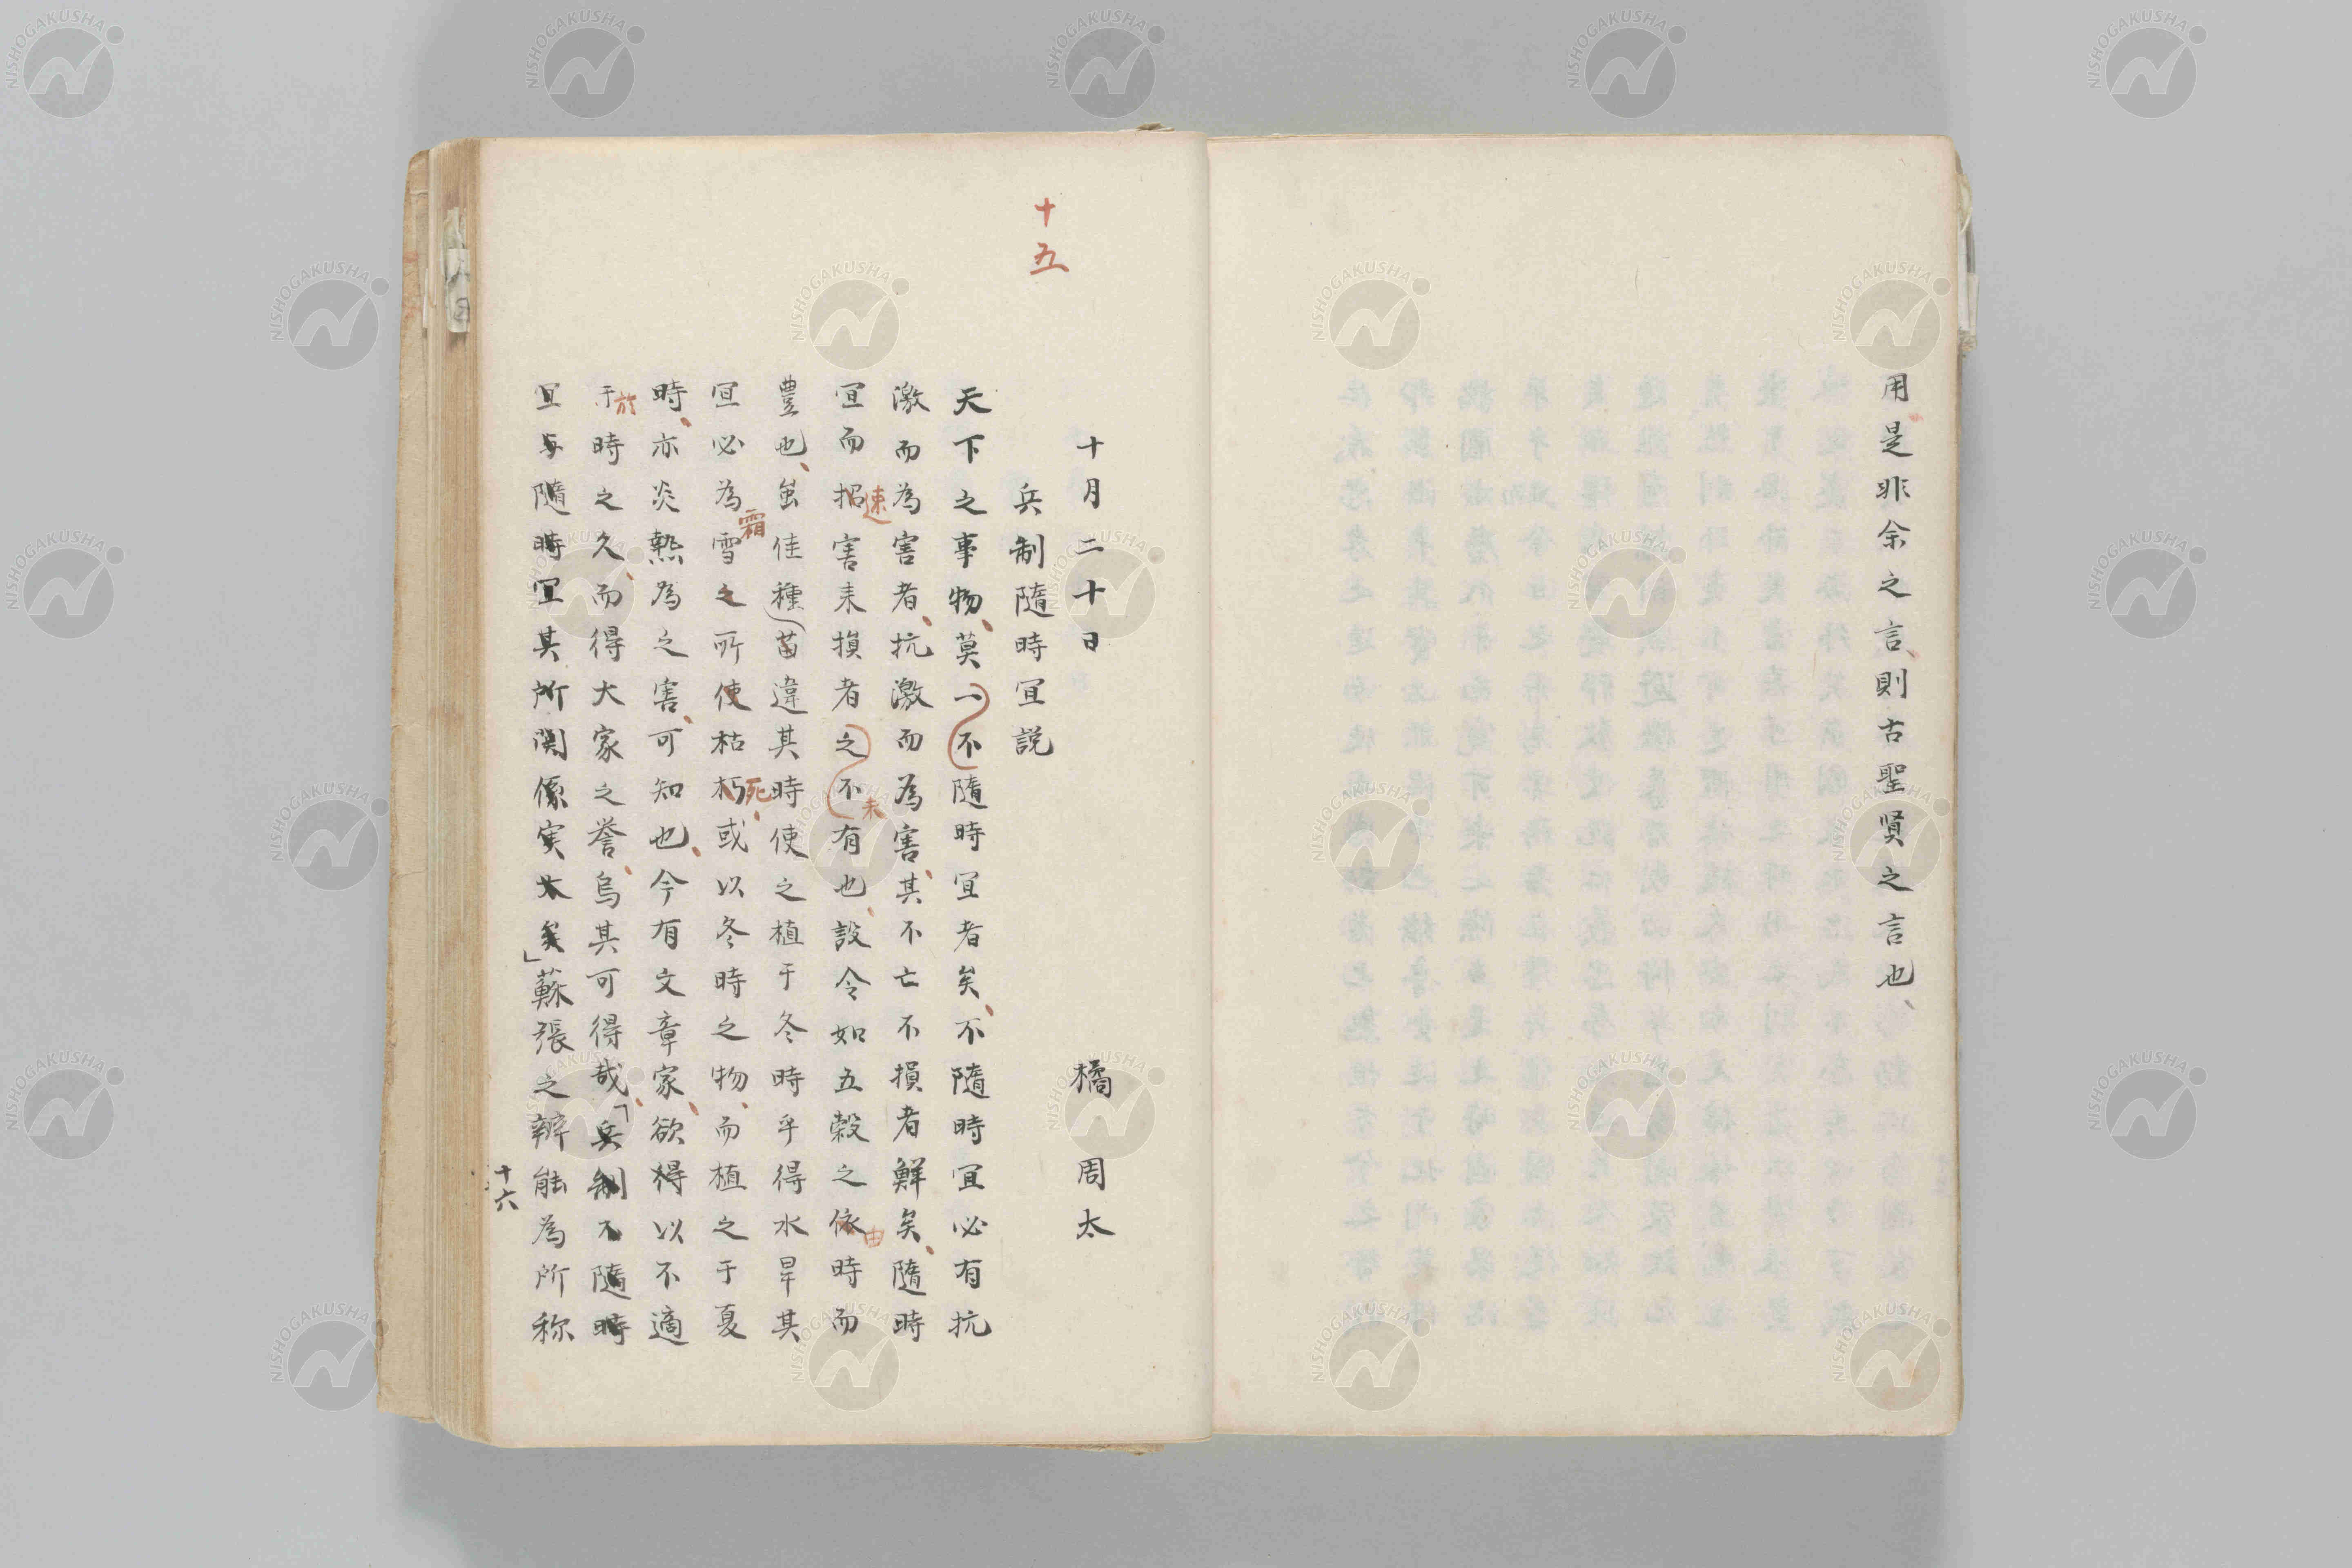 用是非余之言、則古聖賢之言也、
十五
十月二十日　橘周太
兵制隨時宜説
天下之事物、莫一不隨時宜者矣、不隨時宜必有抗
激而為害者、抗激而為害、其不亡不損者鮮矣、隨時
宜而招害来損者之不有也、設令如五穀之依時而
速
未
由
豊也、虽佳種苗違其時使之植于冬時乎得水旱其
宜必為雪之所使枯朽、或以冬時之物、而植之于夏
霜
死
時、亦炎熱為之害、可知也、今有文章家、欲得以不適
于時之久、而得大家之誉、烏其可得哉、「兵制不隨時
於
宜与隨時宜其所関係実大矣」蘇張之辨能為所称
十六
NISHOGAKUSHA